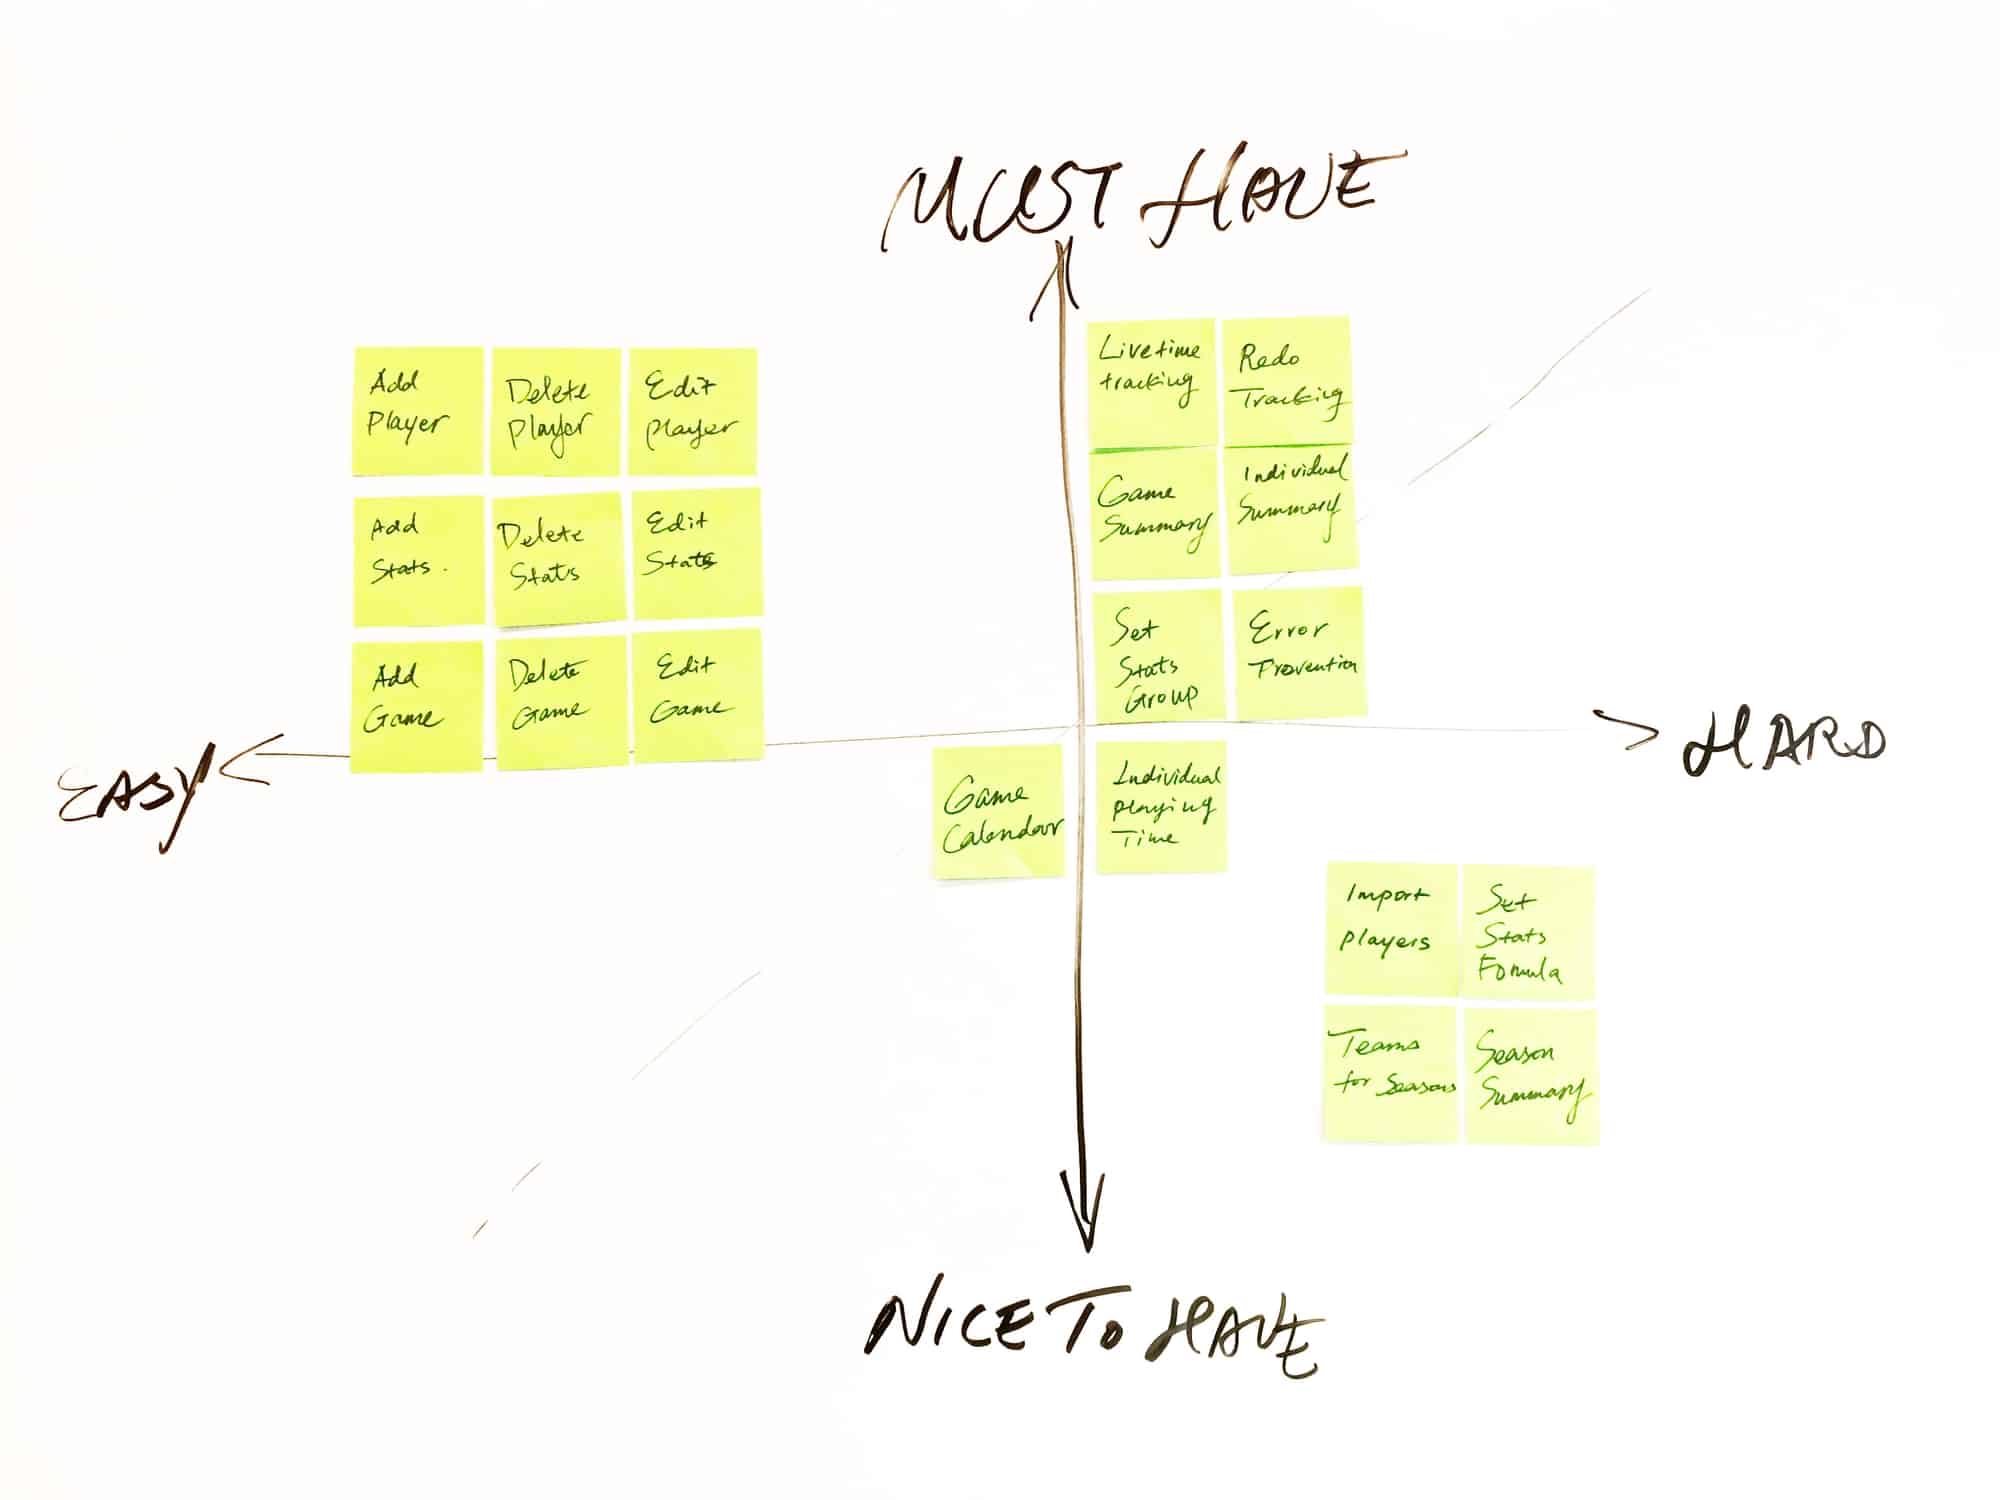 MUST HAVE
Add
Player
Delete
Player
Edit
player
Add
Stats.
Delete
Stats
Edit
Stats
Add
Game
Delete
Game
Edit
Game
Livetime
tracking
Redo
Tracking
Game
Summary
Individual
Summary
Set
Stats
Group
Error
Prevention
EASY
HARD
Game
Calendar
Individual
Playing
Time
Import
Players
Set
Stats
Fomula
Teams
for Seasons
Season
Summary
NICE TO HAVE